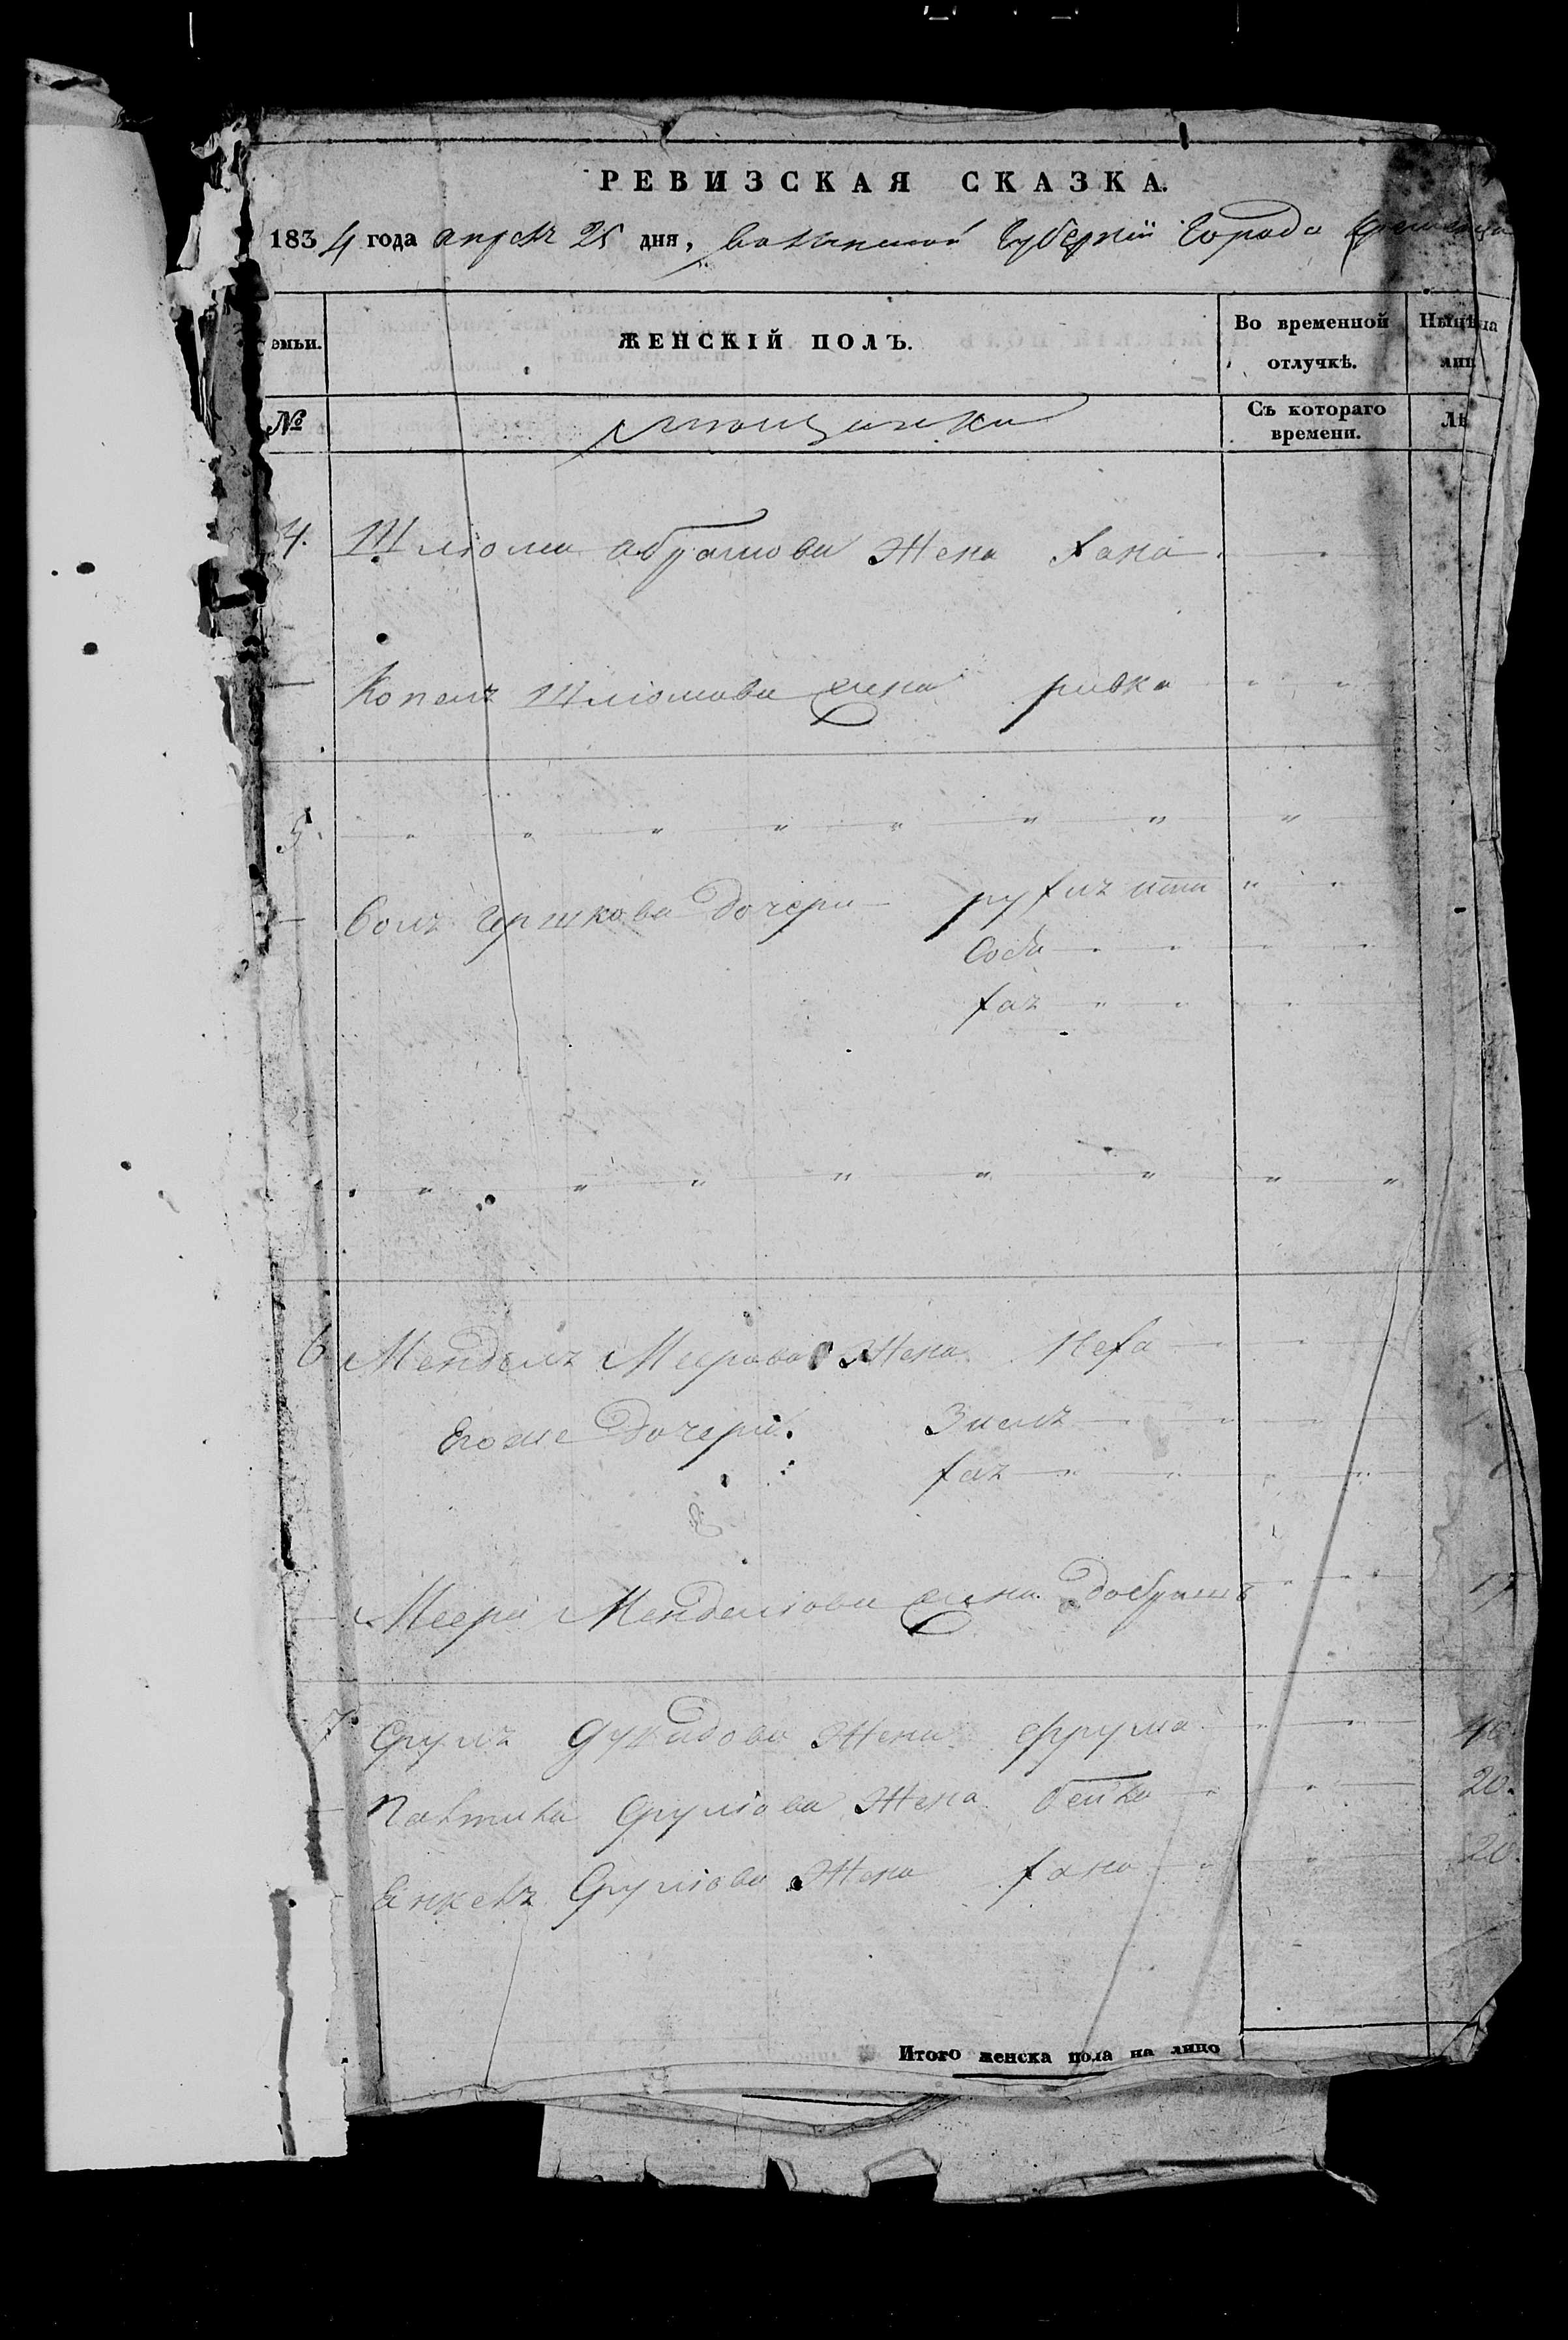 РЕВИЗСКАЯ СКАЗКА.
1834 года апреля 25 дня, Волынской Губернии Города Кременца
емьи. ЖЕНСКІЙ ПОЛЪ. Во временной отлучкѣ. Нынѣ на лиц
№ мещанки Съ котораго времени. Лѣ
4. Шлiома Абрамова Жена Хана
Копель Шлiомова жена ривка
5.
Гершкова Дочери
Соба
Хая
6 Мендель Меерова Жена Неха
Егоже Дочери. Зисль
Хая
Меера Менделiова жена Добрышъ 17
7 Срулъ Жена Фрума 40
Срулiова Жена бейла 20.
Янкель Срулiова Жена Хана 20.
Итого женска пола на лицо